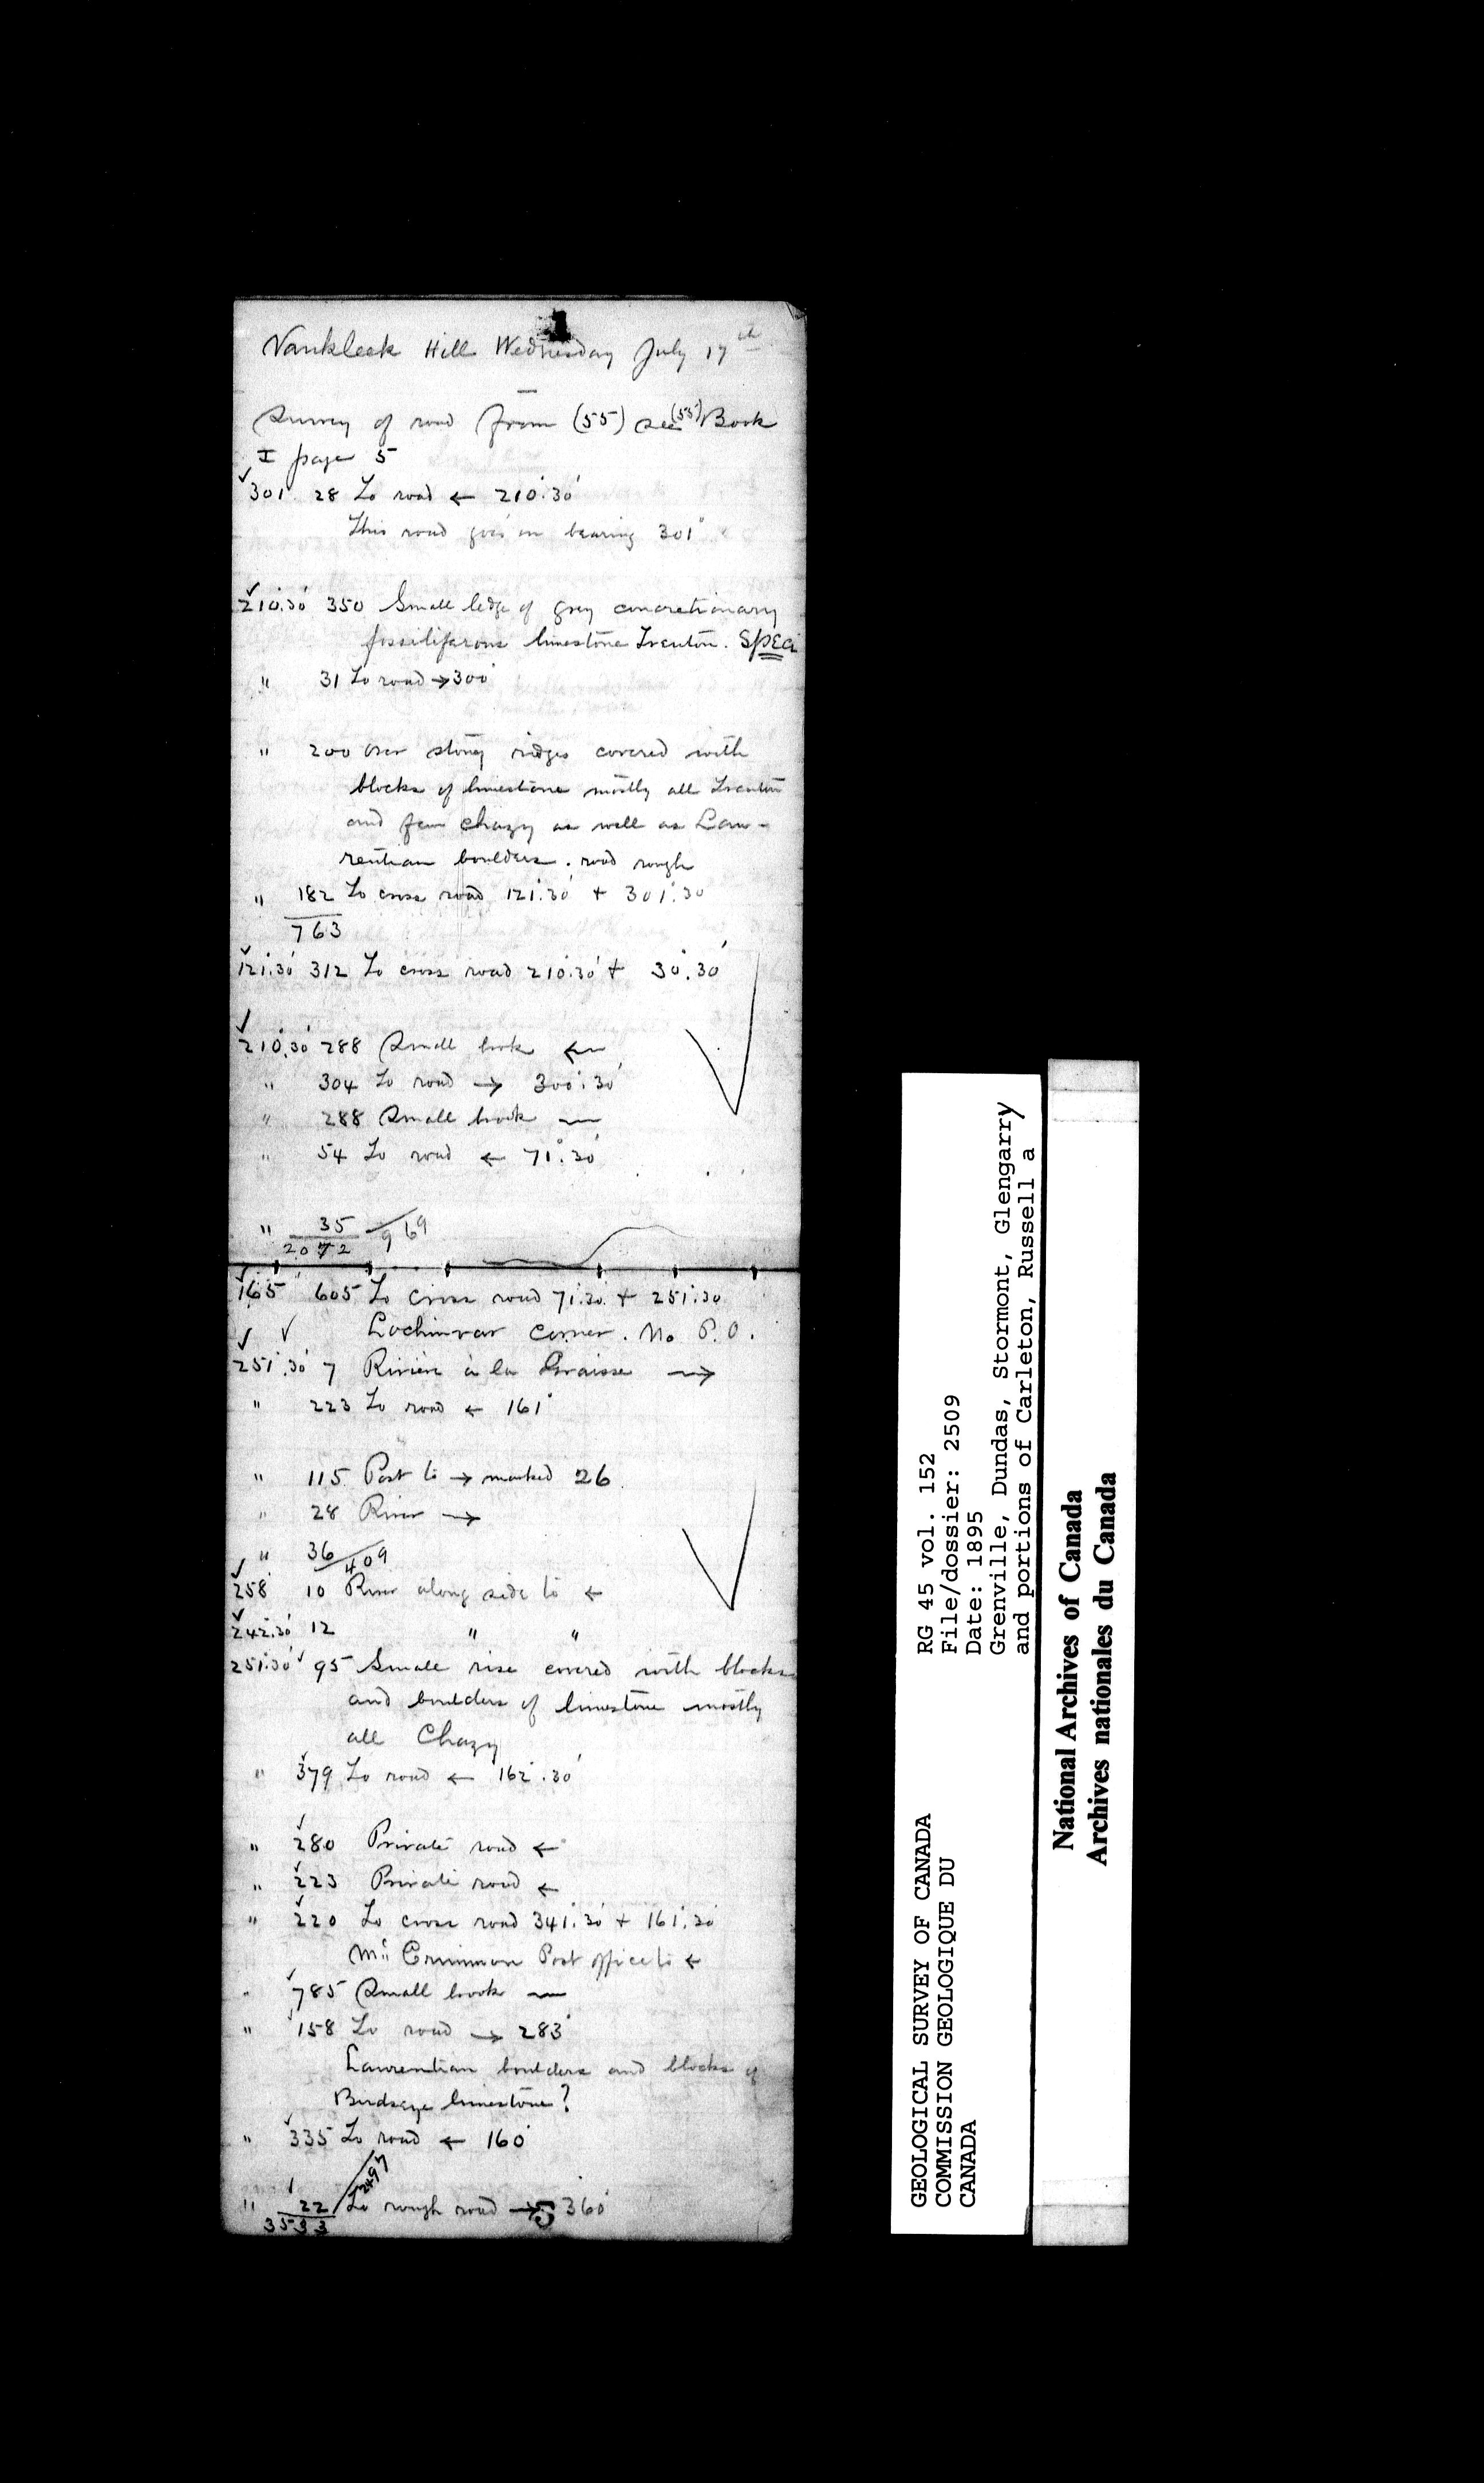 1
Vankleek Hill Wednesday July 17th
Survey of road from (55) see (55) Book
I page 5
301° 28 To road ← 210°.30'
This road goes on bearing 301°
210°.30' 350 Small ledge of grey concretionary
fossiliferous limestone Trenton. Speci
" 31 To road → 300°
" 200 over stony ridges covered with
blocks of limestone mostly all Trenton
and few Chazy as well as Lau-
rentian boulders. road rough
" 182 To cross road 121°.30' + 301°.30
763
121°.30' 312 To cross road 210°.30' + 30°.30'
210°.30' 288 Small brook ←
" 304 To road → 300°.30'
" 288 Small brook —
" 54 To road ← 71°.30'
" 35 969
2072
165° 605 To cross road 71°.30' + 251°.30
Lochinvar Corner. No P.O.
251°.30' 7 Rivière à la Graisse →
" 223 To road ← 161°
" 115 Post to → marked 26
" 28 River →
" 36 409
258° 10 River along side to ←
242°.30' 12 " "
251°.30' 95 Small rise covered with blocks
and boulders of limestone mostly
all Chazy
" 379 To road ← 162°.30'
" 280 Private road ←
" 223 Private road ←
" 220 To cross road 341°.30' + 161°.30'
Mc Crimmon Post office to ←
" 785 Small brook —
" 158 To road → 283°
Laurentian boulders and blocks of
Birdseye limestone?
" 335 To road ← 160°
2497
" 22 To rough road → 360°
3533
5
GEOLOGICAL SURVEY OF CANADA
COMMISSION GEOLOGIQUE DU
CANADA
RG 45 vol. 152
File/dossier: 2509
Date: 1895
Grenville, Dundas, Stormont, Glengarry
and portions of Carleton, Russell a
National Archives of Canada
Archives nationales du Canada